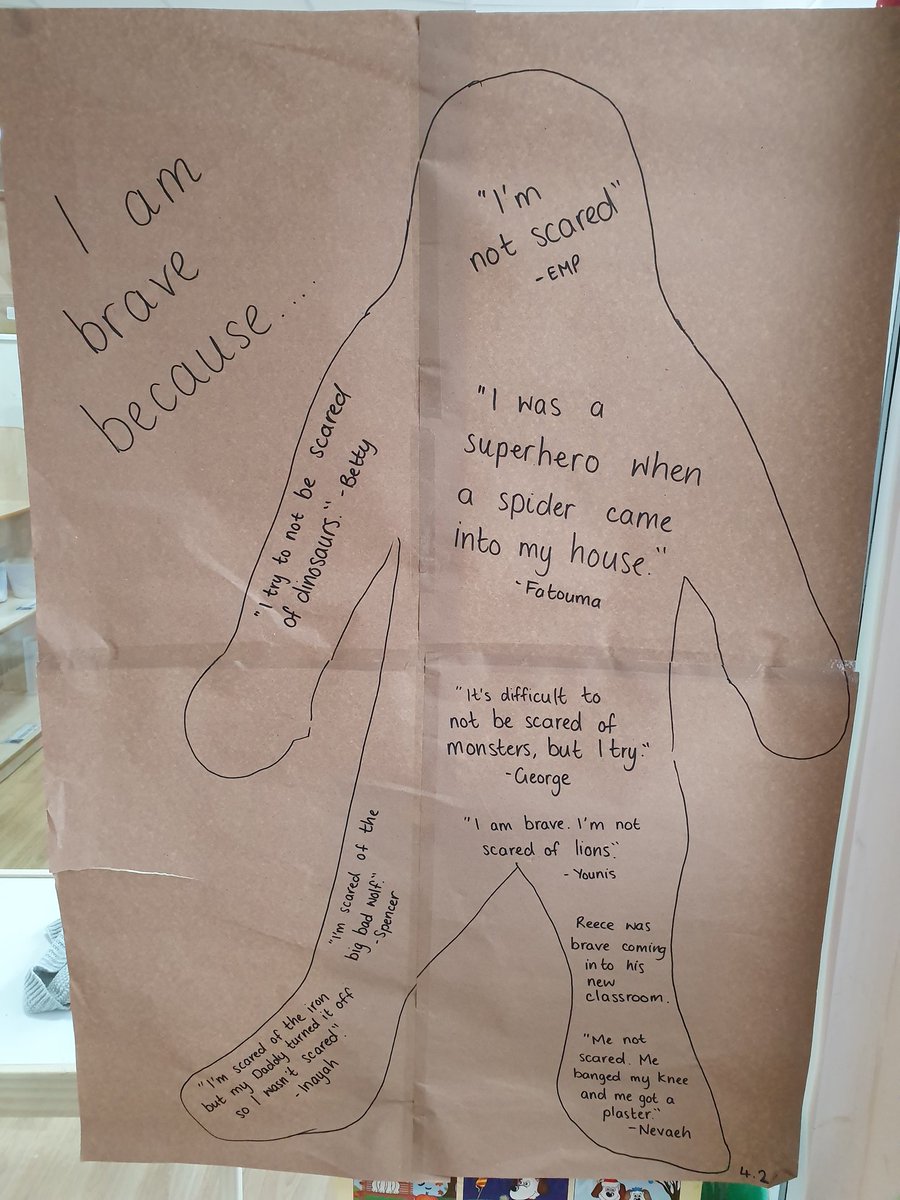 I am
brave
because....
"I'm
not scared"
-EMP
"I try to not be scared
of dinosaurs." -Betty
"I was a
superhero when
a spider came
into my house."
-Fatouma
"It's difficult to
not be scared of
monsters, but I try."
-George
"I am brave. I'm not
scared of lions."
-Younis
"I'm scared of the
big bad wolf."
-Spencer
Reece was
brave coming
into his
new
classroom.
"I'm scared of the iron
but my Daddy turned it off
so I wasn't scared".
-Inayah
"Me not
scared. Me
banged my knee
and me got a
plaster."
-Nevaeh
4.2